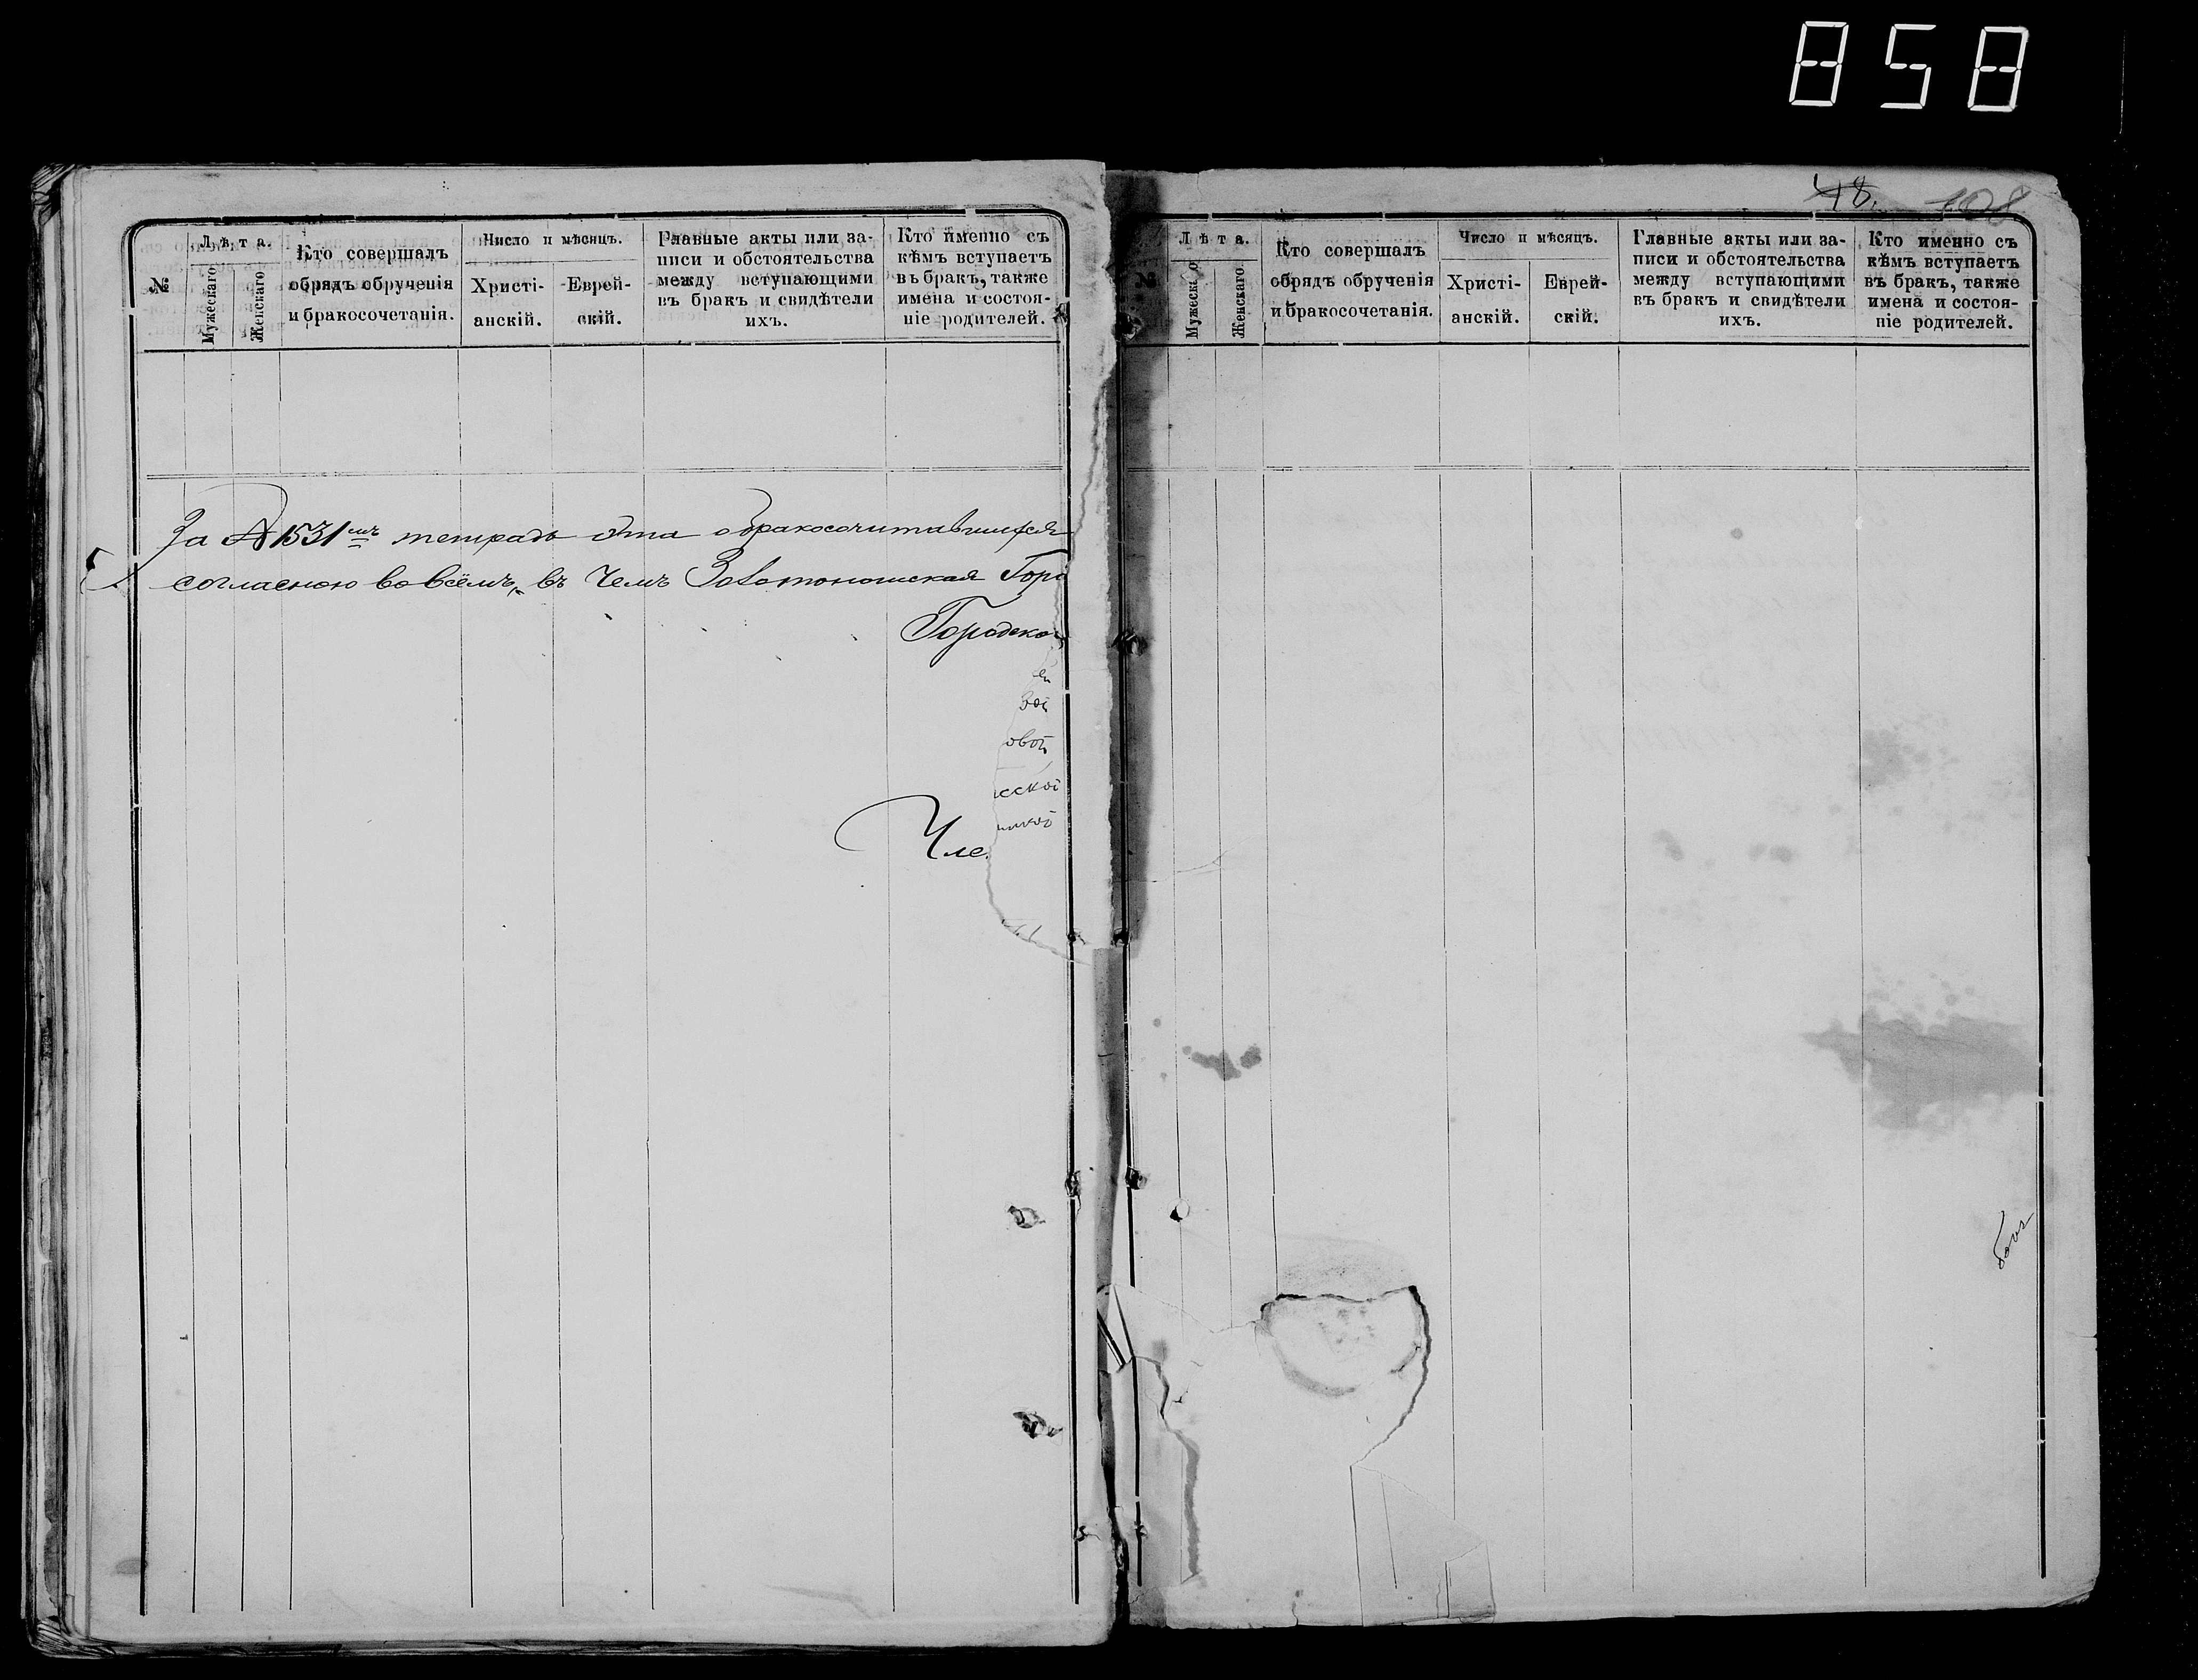 858
№
Лѣта.
Мужескаго
Женскаго
Кто совершалъ
обрядъ обрученія
и бракосочетанія.
Число и мѣсяцъ.
Христі-
анскій.
Еврей-
скій.
Главные акты или за-
писи и обстоятельства
между вступающими
въ бракъ и свидѣтели
ихъ.
Кто именно съ
кѣмъ вступаетъ
въ бракъ, также
имена и состоя-
ніе родителей.
За № 1531мъ тетрадь эта обракосочитавшихся
согласною во всёмъ, въ чемъ Золотоношская Горо
Городско
зой
овой
сской
Чле
48.
108
№
Лѣта.
Мужеск о
Женскаго.
Кто совершалъ
обрядъ обрученія
и бракосочетанія.
Число и мѣсяцъ.
Христі-
анскій.
Еврей-
скій.
Главные акты или за-
писи и обстоятельства
между вступающими
въ бракъ и свидѣтели
ихъ.
Кто именно съ
кѣмъ вступаетъ
въ бракъ, также
имена и состоя-
ніе родителей.